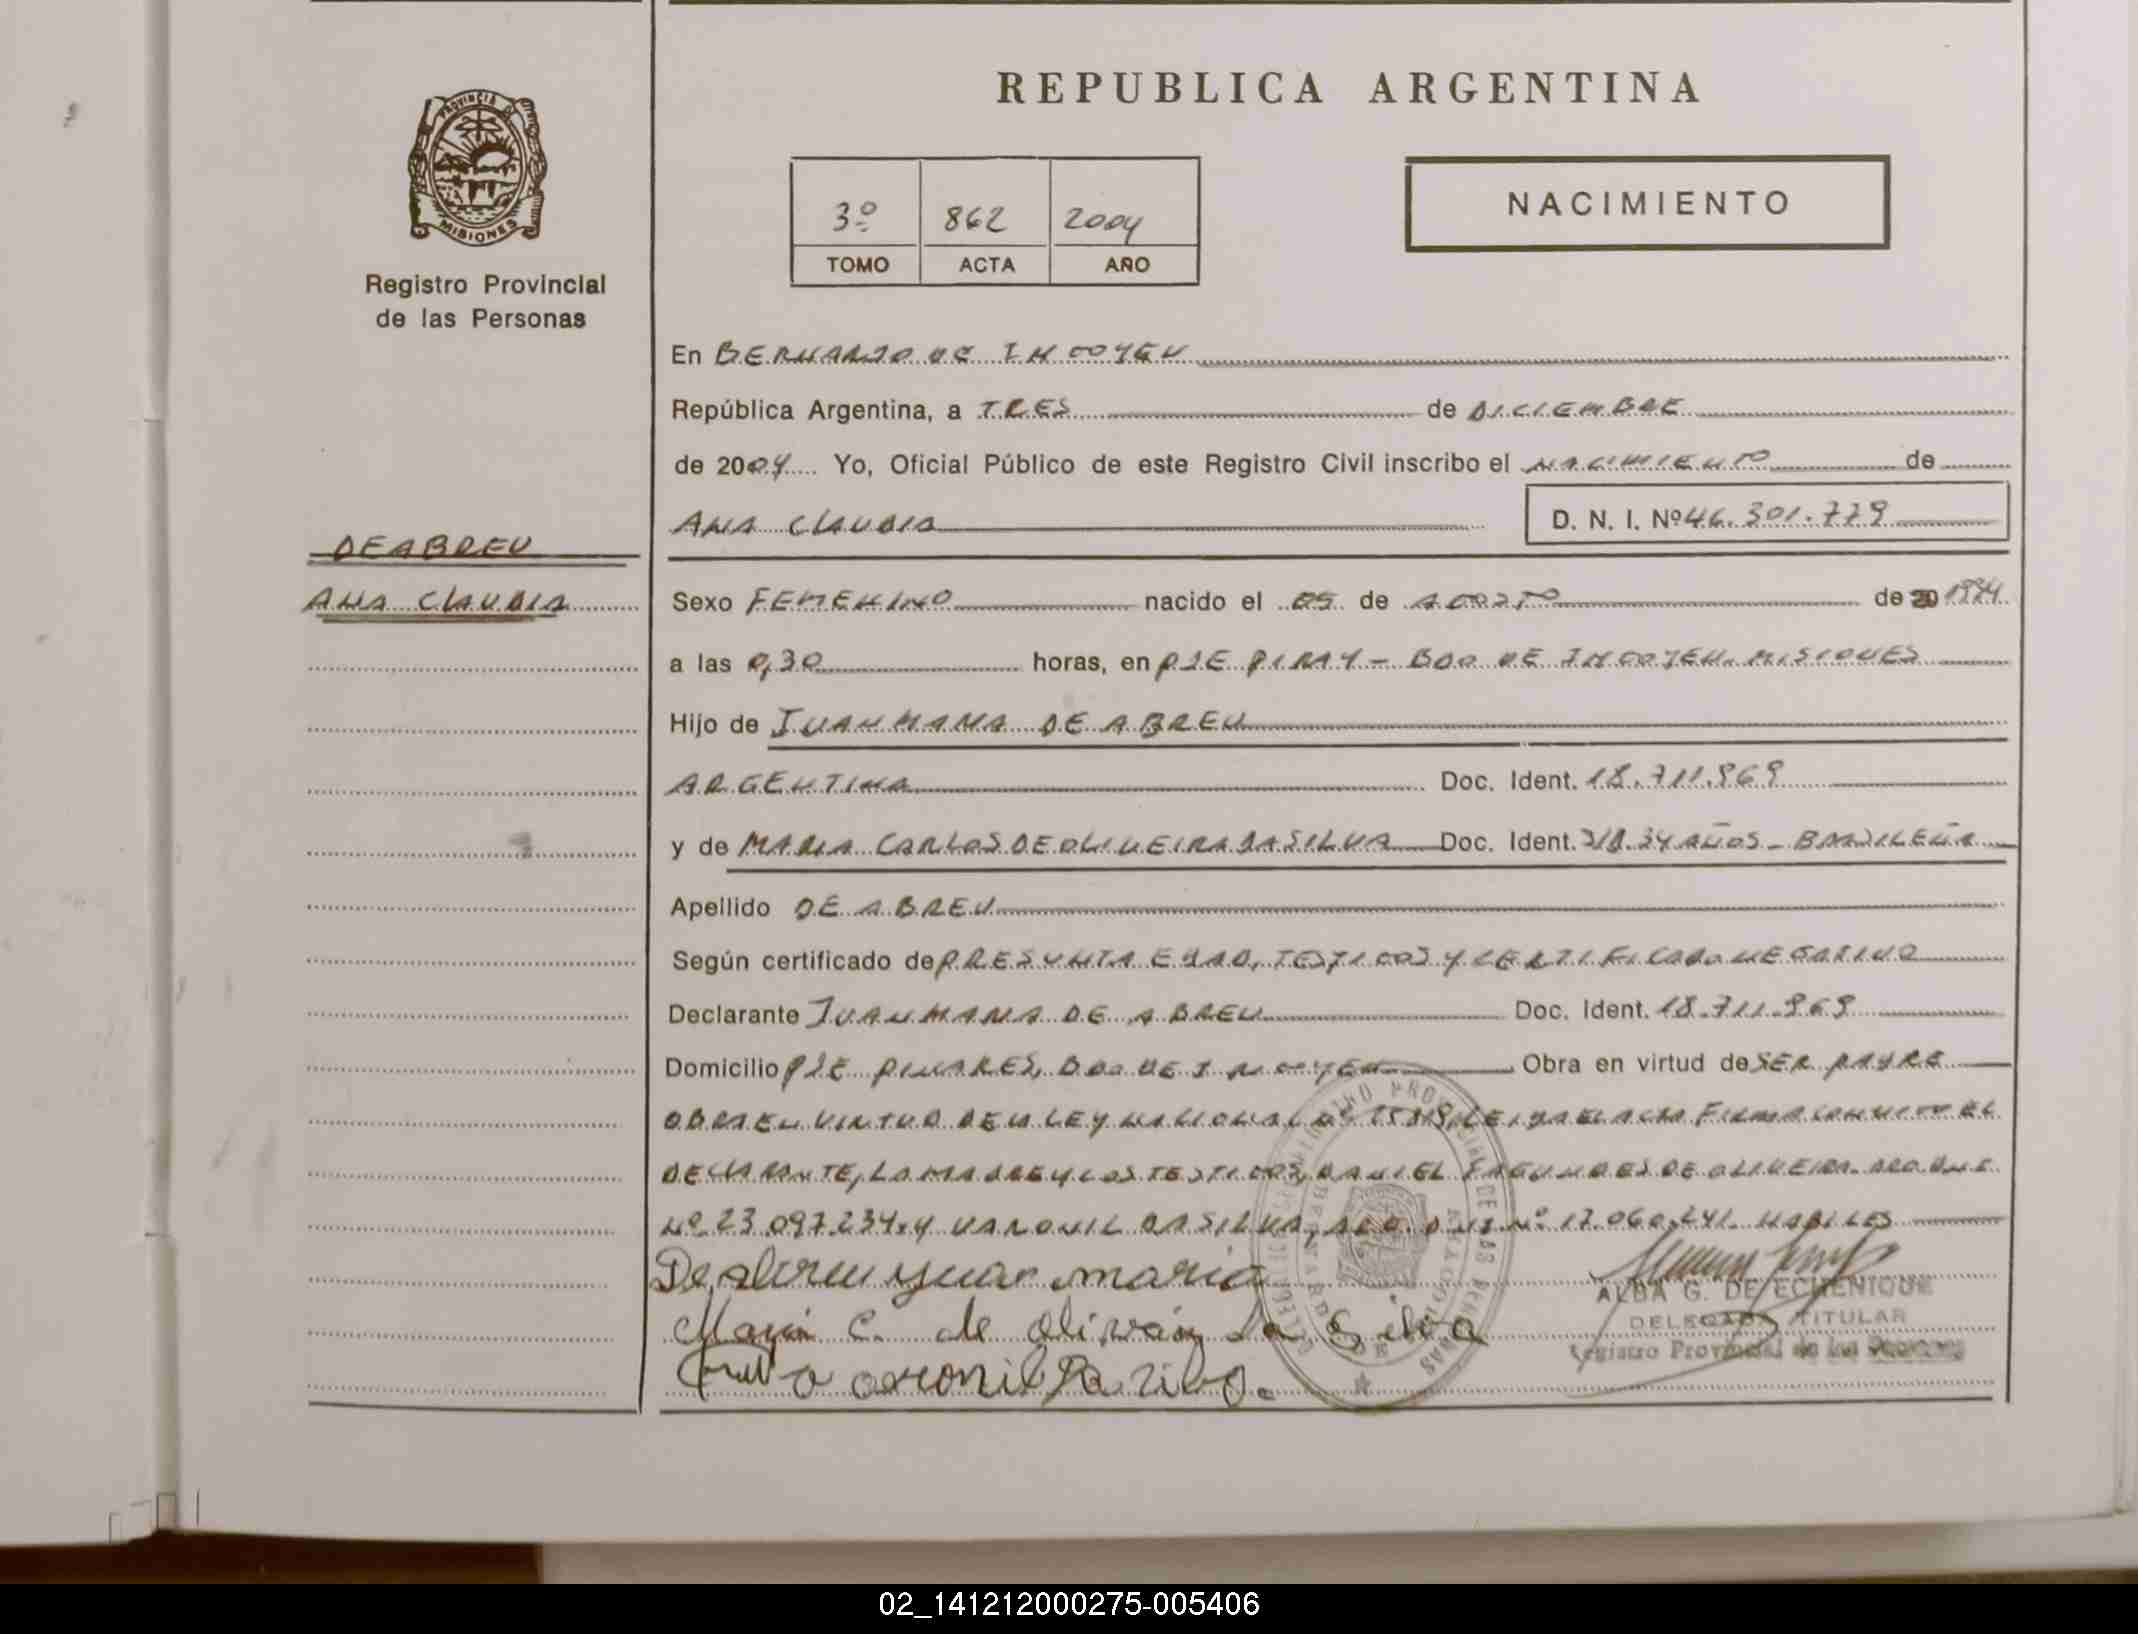 PROVINCIA DE
MISIONES
Registro Provincial
de las Personas
DE ABREU
ANA CLAUDIA
REPUBLICA ARGENTINA
3º 862 2004
TOMO ACTA AÑO
NACIMIENTO
En BERNARDO DE IRIGOYEN
República Argentina, a TRES de DICIEMBRE
de 2004 Yo, Oficial Público de este Registro Civil inscribo el NACIMIENTO de
ANA CLAUDIA D. N. I. Nº 46.301.779
Sexo FEMENINO nacido el 05 de AGOSTO de 20 1994
a las 0,30 horas, en PJE PIRAY - BDO DE IRIGOYEN. MISIONES
Hijo de JUAN MARIA DE ABREU
ARGENTINA Doc. Ident. 18.711.969
y de MARIA CARLOS DE OLIVEIRA DA SILVA Doc. Ident. 34 AÑOS - BRASILEÑA
Apellido DE ABREU
Según certificado de PRESUNTA EDAD, TESTIGOS Y CERTIFICADO NEGATIVO
Declarante JUAN MARIA DE ABREU Doc. Ident. 18.711.969
Domicilio PJE PINARES, BDO DE IRIGOYEN Obra en virtud de SER PADRE
OBRA EN VIRTUD DE LA LEY NACIONAL Nº LEIDA EL ACTA FIRMA CONMIGO EL
DECLARANTE, LA MADRE Y LOS TESTIGOS, DANIEL FAGUNDES DE OLIVEIRA. ARG DNI
Nº 23.097.234. Y DA SILVA, ARG. DNI Nº 17.060.241. HABILES
De abreu Juan maria
Maria C. de da Silva
ALBA G. DE ECHENIQUE
DELEGADA TITULAR
Registro Provincial de las Personas
02_141212000275-005406